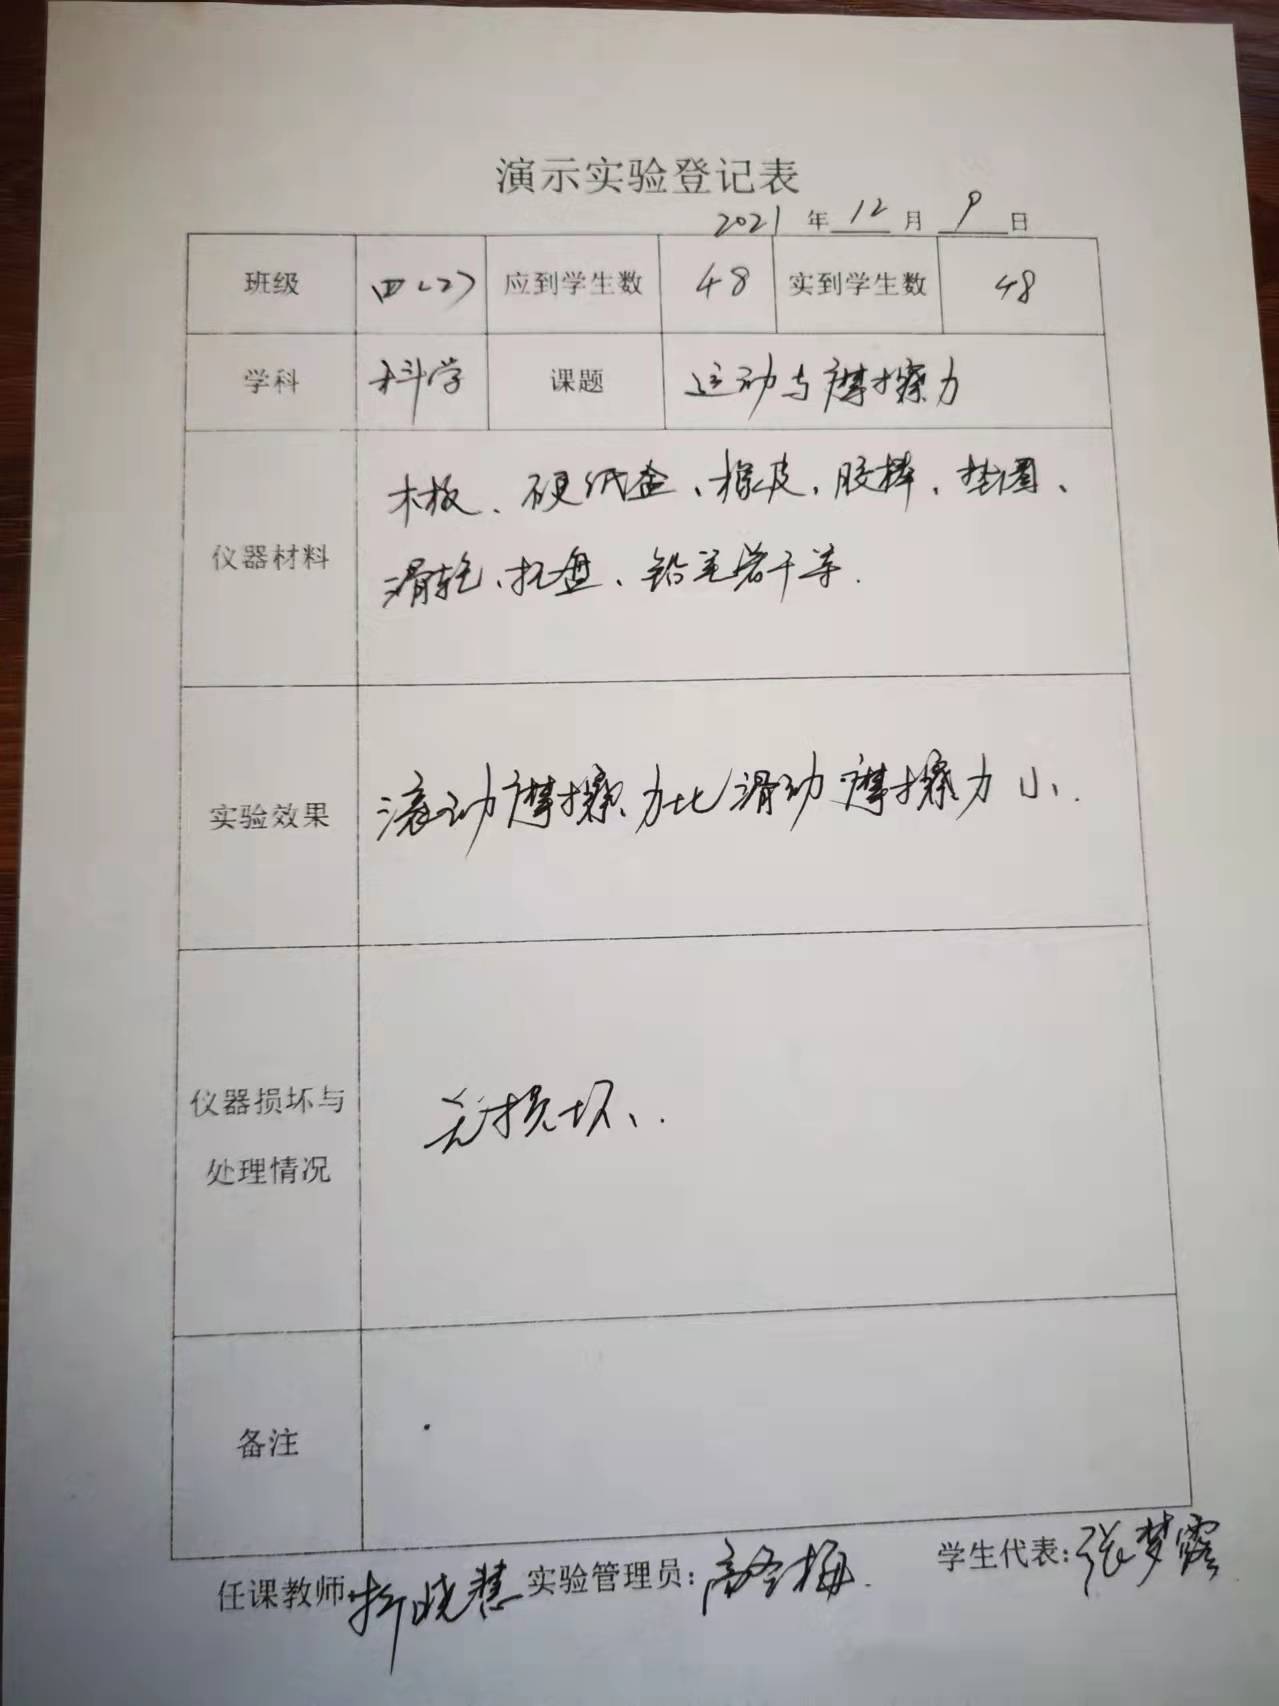 演示实验登记表
2021 年 12 月 9 日
班级 四(2) 应到学生数 48 实到学生数 48
学科 科学 课题 运动与摩擦力
仪器材料
木板、硬纸盒、橡皮、胶棒、垫圈、
滑轮、托盘、铅笔若干等.
实验效果
滚动摩擦力比滑动摩擦力小.
仪器损坏与
处理情况
无损坏、.
备注
任课教师: 晓慧 实验管理员: 高 梅. 学生代表: 张梦露